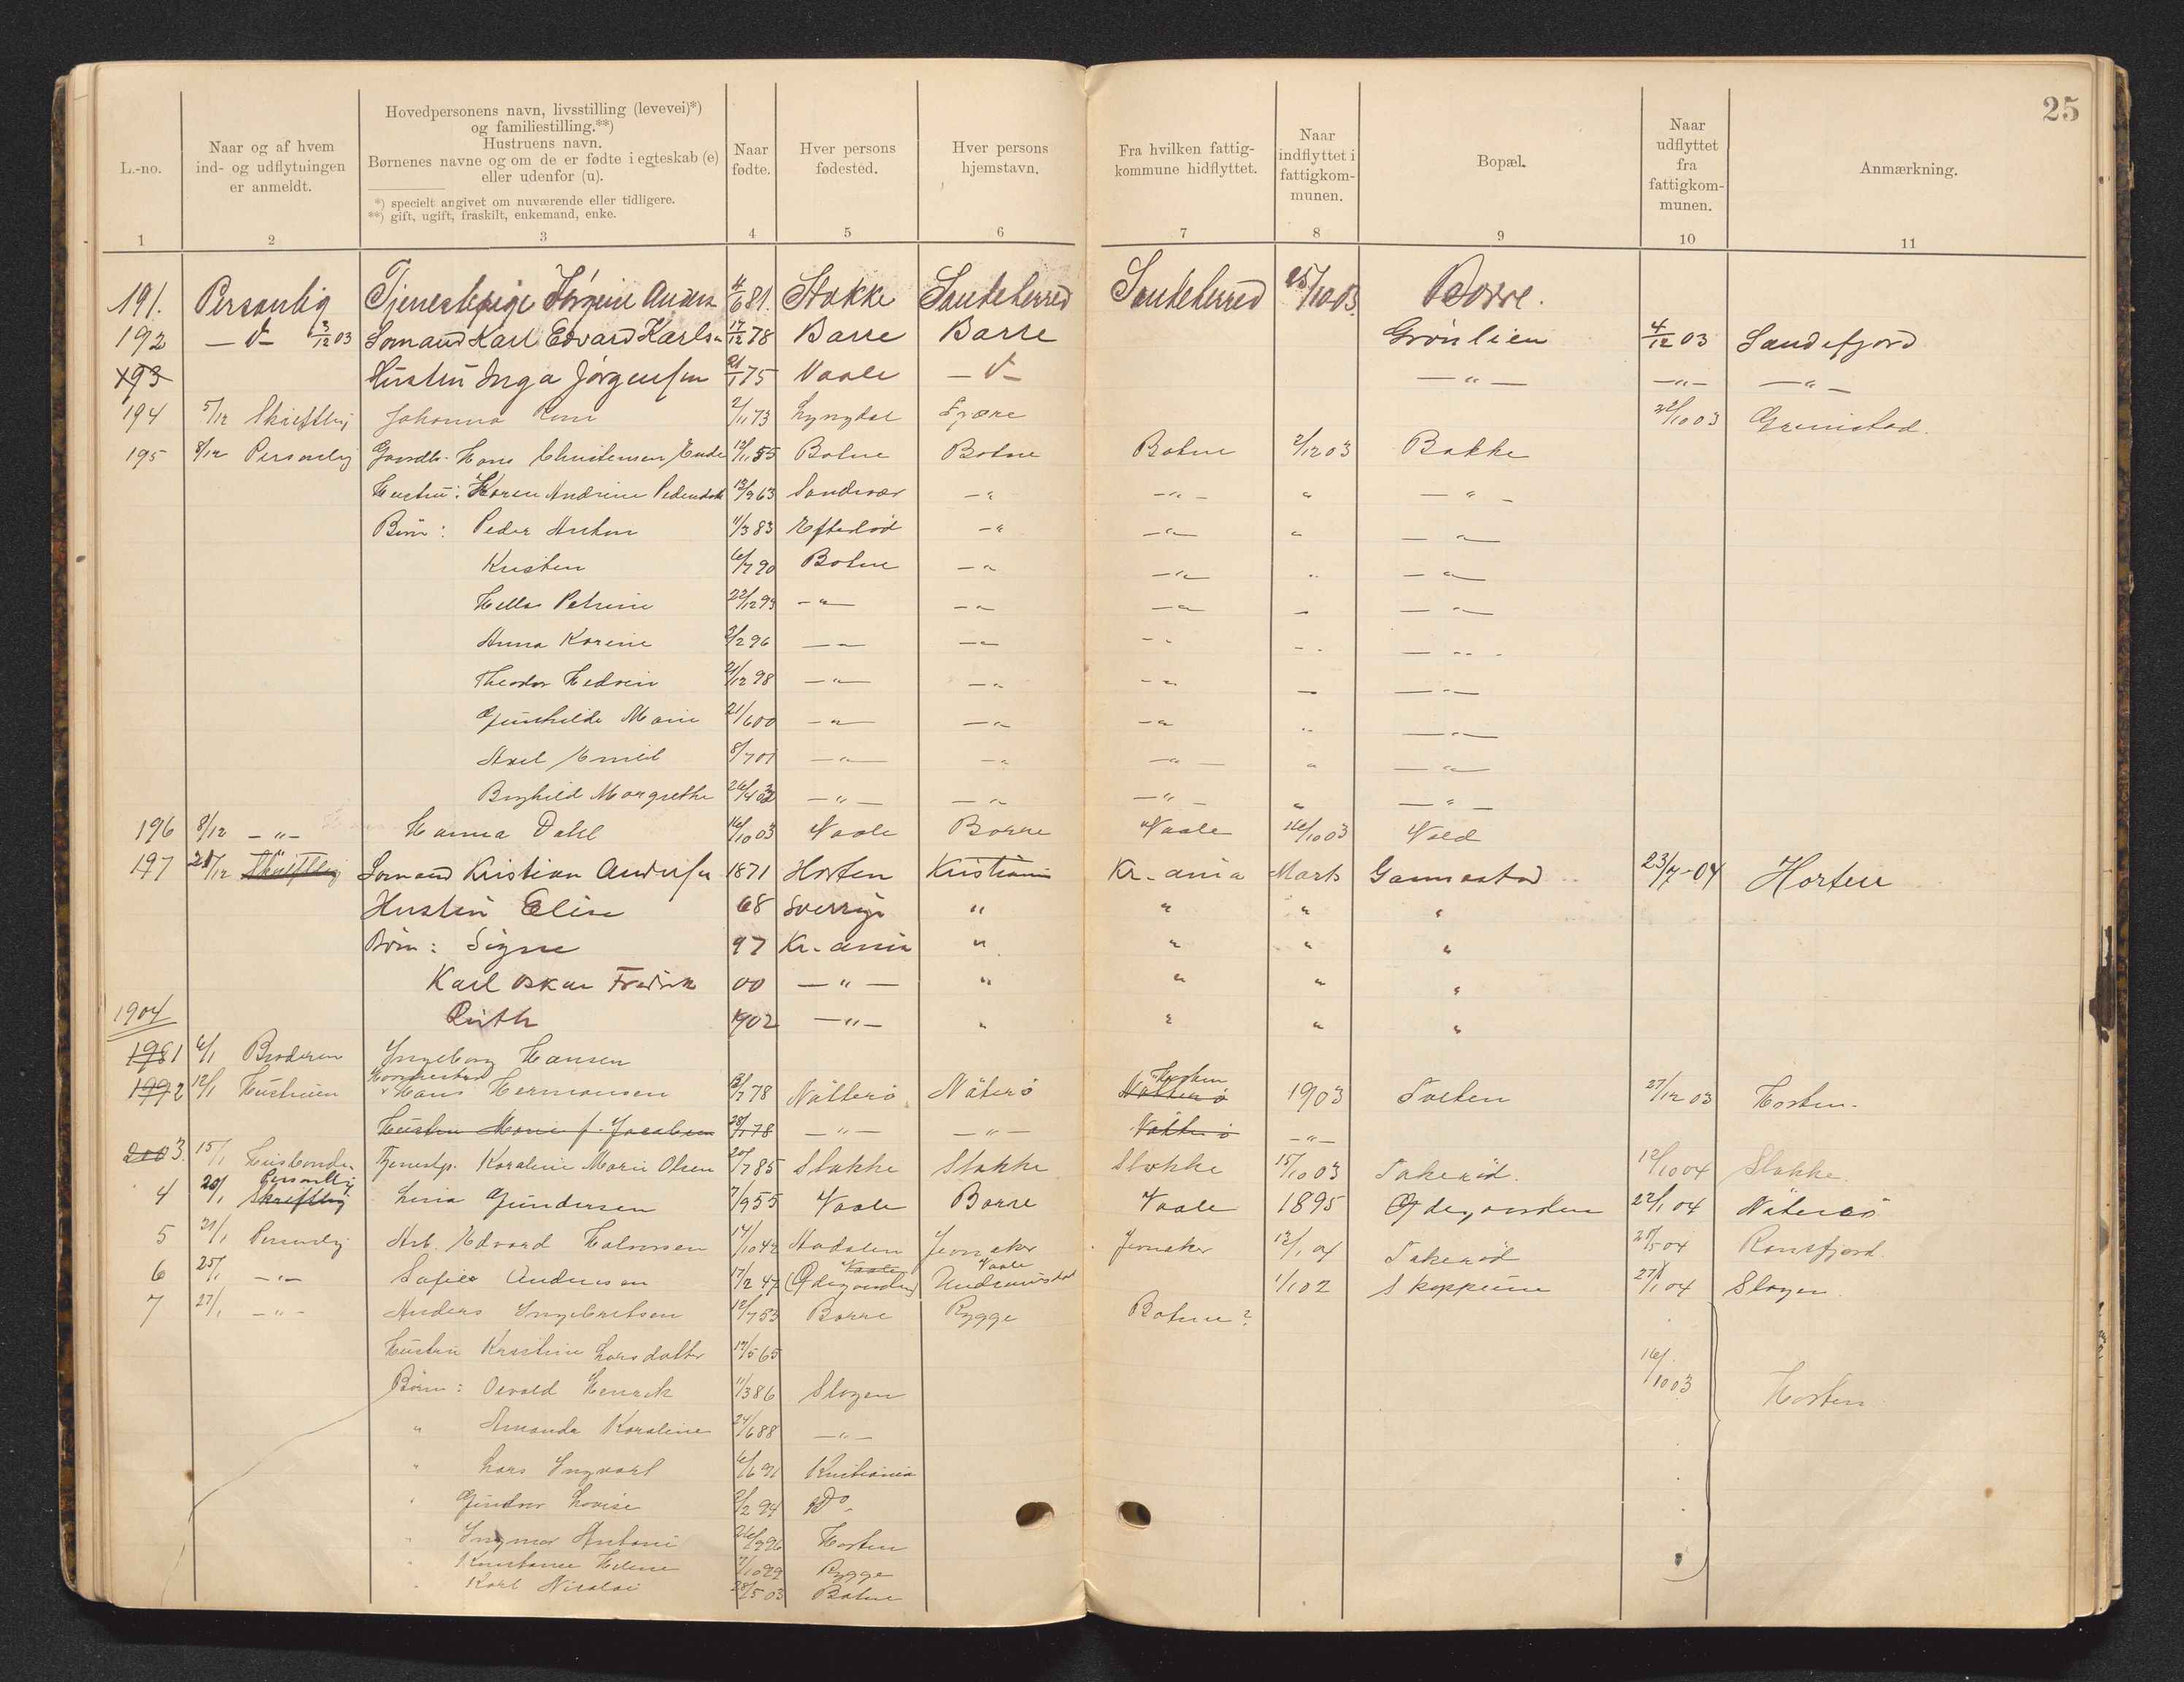 25
L.-no.
Naar og af hvem ind- og udflytningen er anmeldt.
Hovedpersonens navn, livsstilling (levevei)*) og familiestilling.**)
Hustruens navn.
Børnenes navne og om de er fødte i egteskab (e) eller udenfor (u).
*) specielt angivet om nuværende eller tidligere.
**) gift, ugift, fraskilt, enkemand, enke.
Naar fødte.
Hver persons fødested.
Hver persons hjemstavn.
Fra hvilken fattigkommune hidflyttet.
Naar indflyttet i fattigkommunen.
Bopæl.
Naar udflyttet fra fattigkommunen.
Anmærkning.
1 2 3 4 5 6 7 8 9 10 11
191. Personlig Tjenestepige Jørgine Anders 4/6 81. Stokke Sandeherred Sandeherred 25/10 03 Borre.
192 3/12 03 Sømand Karl Edvard Karls 17/12 78 Borre Borre Grønlien 4/12 03 Sandefjord
193 Hustru Inga Jørgensen 21/1 75 Vaale — " — — " — — " —
194 5/12 Skriftlig Johanna 2/11 73 Lyngdal Fjære 22/10 03 Grimstad.
195 8/12 Personlig Hans Christensen 12/11 55 Botne Botne Botne 2/12 03 Bakke
Hustru: Karen Andrine Pedersdatter 13/9 63 Sandsvær — " — " — " — " —
Børn: Peder Anton 1/3 83 Eftelød — " — " — " — " —
Kristen 6/7 90 Botne — " — " — " — " —
Hella Petrine 22/12 93 — " — — " — " — " — " —
Anna Karine 3/2 96 — " — — " — — " — " — " —
Theodor Hedvin 21/12 98 — " — — " — " — " — " —
Gunhilde Marie 21/6 00 — " — — " — — " " — " —
Axel Emil 8/7 01 — " — — " — " — " — " —
Borghild Margrethe 26/4 03 — " — — " — " — " — " —
196 8/12 — " — Hanna Dahl 16/10 03 Vaale Borre Vaale 16/10 03 Vold
197 21/12 Skriftlig Sømand Kristian Andersen 1871 Horten Kristiania Kr.ania Marts Gannestad 23/7-04 Horten
Hustru Elise 68 Sverrige " " " "
Børn: Signe 97 Kr.ania " " " "
Karl Oskar Fredrik 00 — " — " " " "
Ruth 1902 — " — " " " "
1904
1981 6/1 Broderen Ingeborg Hansen
1992 12/1 Hustruen Hans Hermansen 3/7 78 Nøtterø Nøterø Nøtterø Horten 1903 Solten 27/12 03 Horten.
Hustru Marie f. Jacobsen 28/1 78 — " — — " — Nøtterø — " —
2003. 15/1 Husbonden Tjenestp. Karoline Marie Olsen 20/7 85 Stokke Stokke Stokke 15/10 03 Takerød. 12/10 04 Stokke.
4 20/1 Skriftlig Personlig Lina Gundersen 7/9 55 Vaale Borre Vaale 1895 22/1 04 Nøterø
5 21/1 Personlig Arb. Edvard Halvorsen 14/10 42 Aadalen Jevnaker Jevnaker 12/1 04 Takerød 21/5 04 Ransfjord.
6 25/1 — " — Sofie Andersen 17/2 47 Vaale Vaale 1/1 02 Skoppum 27/1 04 Slagen.
7 27/1 — " — Anders Ingebretsen 12/7 53 Borre Rygge Botne?
Hustru Kristine Larsdatter 17/5 65
Børn: Osvald Henrik 11/3 86 Slagen 16/10 03 Horten
" Amanda Karoline 24/6 88 — " —
" Lars Ingvart 6/6 91 Kristiania
" Gudrun Lovise 2/2 94 Do
" Ingmar Antoni 26/9 96 Horten
" Konstanse Helene 7/10 99 Rygge
" Karl Nicolai 28/5 03 Botne